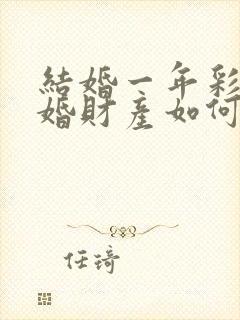 結婚一年彩
婚財産如何
任琦